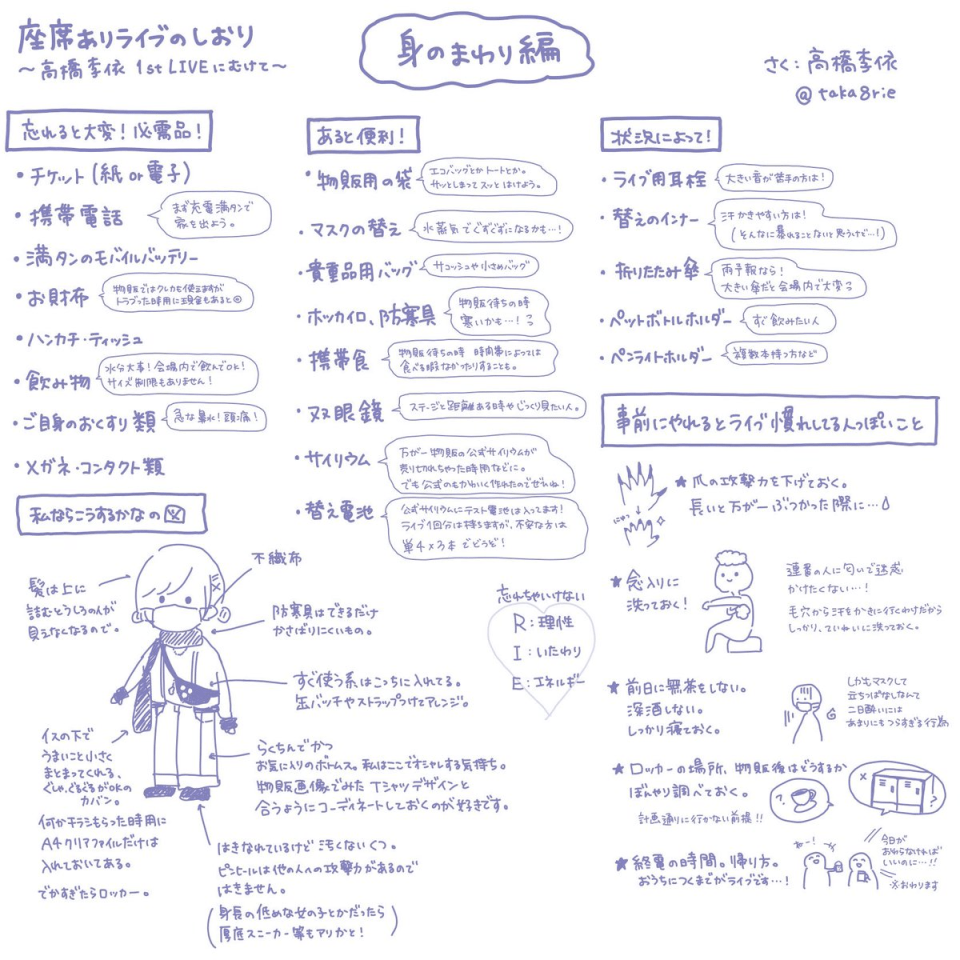 座席ありライブのしおり
〜高橋李依 1st LIVEにむけて〜
身のまわり編
さく：高橋李依
@taka8rie
忘れると大変！必需品！
・チケット（紙or電子）
・携帯電話
まず充電満タンで
家を出よう。
・満タンのモバイルバッテリー
・お財布
物販ではクレカも使えますが
トラブった時用に現金もあると◎
・ハンカチ・ティッシュ
・飲み物
水分大事！会場内で飲んでOK！
サイズ制限もありません！
・ご自身のおくすり類
急な鼻水！頭痛！
・メガネ・コンタクト類
あると便利！
・物販用の袋
エコバッグとかトートとか。
サッとしまってスッとはけよう。
・マスクの替え
水蒸気でぐずぐずになるかも…！
・貴重品用バッグ
サコッシュや小さめバッグ
・ホッカイロ、防寒具
物販待ちの時
寒いかも…！
・携帯食
物販待ちの時 時間帯によっては
食べる暇なかったりすることも。
・双眼鏡
ステージと距離ある時や じっくり見たい人。
・サイリウム
万が一物販の公式サイリウムが
売り切れちゃった時用などに。
でも公式のもかわいく作れたのでぜひね！
・替え電池
公式サイリウムにテスト電池は入ってます！
ライブ1回分は持ちますが、不安な方は
単4×3本でどうぞ！
状況によって！
・ライブ用耳栓
大きい音が苦手の方は！
・替えのインナー
汗かきやすい方は！
（そんなに暴れることないと思うけど…！）
・折りたたみ傘
雨予報なら！
大きい傘だと会場内で大変
・ペットボトルホルダー
すぐ飲みたい人
・ペンライトホルダー
複数本持つ方など
事前にやれるとライブ慣れしてる人っぽいこと
★爪の攻撃力を下げておく。
長いと万が一ぶつかった際に…
★念入りに
洗っておく！
連番の人に匂いで迷惑
かけたくない…！
毛穴から汗をかきに行くわけだから
しっかり、ていねいに洗っておく。
★前日に無茶をしない。
深酒しない。
しっかり寝ておく。
しかもマスクして
立ちっぱなしなんて
二日酔いには
あまりにもつらすぎる行為
★ロッカーの場所、物販後はどうするか
ぼんやり調べておく。
計画通りに行かない前提！！
?
?
★終電の時間。帰り方。
おうちにつくまでがライブです…！
あー！
今日が
おわらなければ
いいのに…！！
※おわります
私ならこうするかなの図
髪は上に
詰むとうしろの人が
見えなくなるので。
不織布
防寒具はできるだけ
かさばりにくいもの。
すぐ使う系はこっちに入れてる。
缶バッチやストラップつけてアレンジ。
イスの下で
うまいこと小さく
まとまってくれる、
ぐしゃ、ぐるぐるがOKの
カバン。
何かチラシもらった時用に
A4クリアファイルだけは
入れておいてある。
でかすぎたらロッカー。
らくちんでかつ
お気に入りのボトムス。私はここでオシャレする気持ち。
物販画像でみたTシャツデザインと
合うようにコーディネートしておくのが好きです。
はきなれているけど汚くないくつ。
ピンヒールは他の人への攻撃力があるので
はきません。
（身長の低めな女の子とかだったら
厚底スニーカー等もアリかと！）
忘れちゃいけない
R：理性
I：いたわり
E：エネルギー